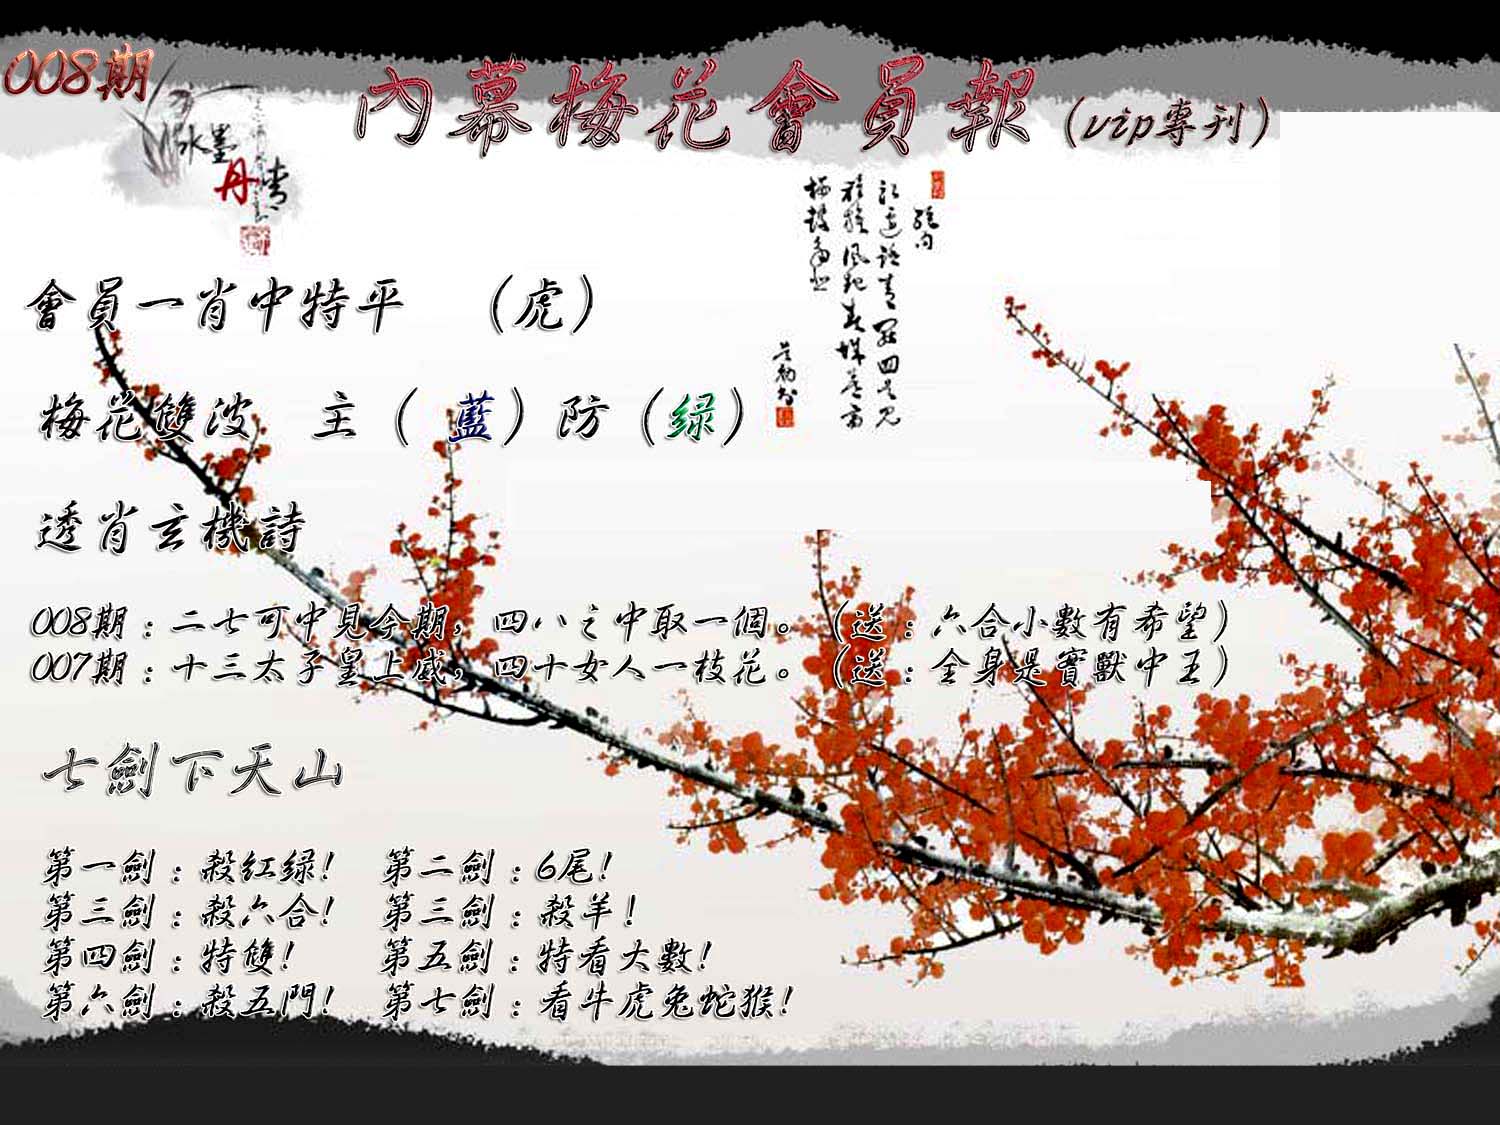 008期
內幕梅花會員報(vip專刊)
水墨
丹青
絕句
會員一肖中特平 (虎)
梅花雙波 主(藍)防(绿)
透肖玄機詩
008期:二七可中見今期,四八之中取一個。(送:六合小數有希望)
007期:十三太子皇上威,四十女人一枝花。(送:全身是寶獸中王)
七劍下天山
第一劍:殺紅绿! 第二劍:6尾!
第三劍:殺六合! 第三劍:殺羊!
第四劍:特雙! 第五劍:特看大數!
第六劍:殺五門! 第七劍:看牛虎兔蛇猴!